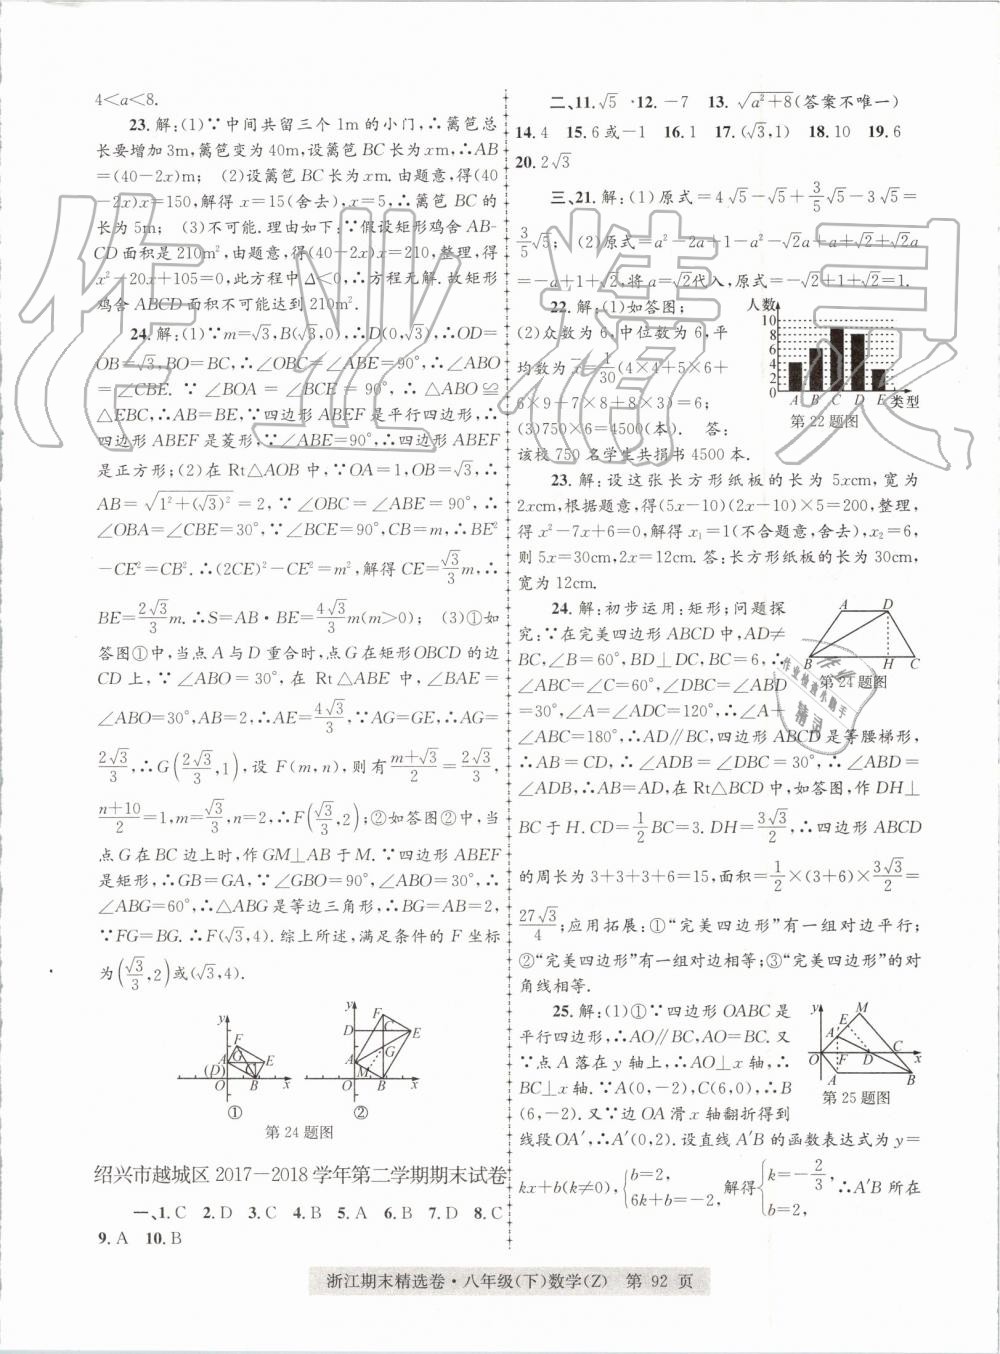 4＜a＜8.
23. 解:(1)∵中间共留三个1m的小门,∴篱笆总
长要增加3m,篱笆变为40m,设篱笆BC长为xm,∴AB
=(40-2x)m; (2)设篱笆BC长为xm.由题意,得(40
-2x)x=150,解得x=15(舍去),x=5,∴篱笆BC的
长为5m; (3)不可能.理由如下:∵假设矩形鸡舍AB-
CD面积是210m²,由题意,得(40-2x)x=210,整理,得
x²-20x+105=0,此方程中Δ<0,∴方程无解.故矩形
鸡舍ABCD面积不可能达到210m².
24. 解:(1)∵m=√3,B(√3,0),∴D(0,√3),∴OD=
OB=√3,BO=BC,∴∠OBC=∠ABE=90°,∴∠ABO
=∠CBE. ∵∠BOA=∠BCE=90°,∴△ABO≌
△EBC,∴AB=BE,∵四边形ABEF是平行四边形,∴
四边形ABEF是菱形,∵∠ABE=90°,∴四边形ABEF
是正方形;(2)在Rt△AOB中,∵OA=1,OB=√3,∴
AB=√(1²+(√3)²)=2,∵∠OBC=∠ABE=90°,∴
∠OBA=∠CBE=30°,∵∠BCE=90°,CB=m,∴BE²
-CE²=CB².∴(2CE)²-CE²=m²,解得CE=√3/3m,∴
BE=2√3/3m.∴S=AB·BE=4√3/3m(m>0); (3)①如
答图①中,当点A与D重合时,点G在矩形OBCD的边
CD上,∵∠ABO=30°,在Rt△ABE中,∠BAE=
∠ABO=30°,AB=2,∴AE=4√3/3,∵AG=GE,∴AG=
2√3/3,∴G(2√3/3,1),设F(m,n),则有(m+√3)/2=2√3/3,
(n+10)/2=1,m=√3/3,n=2,∴F(√3/3,2);②如答图②中,当
点G在BC边上时,作GM⊥AB于M.∵四边形ABEF
是矩形,∴GB=GA,∵∠GBO=90°,∠ABO=30°,∴
∠ABG=60°,∴△ABG是等边三角形,∴BG=AB=2,
∵FG=BG.∴F(√3,4).综上所述,满足条件的F坐标
为(√3/3,2)或(√3,4).
y F A G E (D) O B x
①
y F D C E G A M O B x
②
第24题图
绍兴市越城区2017—2018学年第二学期期末试卷
一、1. C 2. D 3. C 4. B 5. A 6. B 7. D 8. C
9. A 10. B
二、11. √5 12. -7 13. √(a²+8)(答案不唯一)
14. 4 15. 6或-1 16. 1 17. (√3,1) 18. 10 19. 6
20. 2√3
三、21. 解:(1)原式=4√5-√5+3/5√5-3√5=
3/5√5; (2)原式=a²-2a+1-a²-√2a+a+√2+√2a
=-a+1+√2,将a=√2代入,原式=-√2+1+√2=1.
22. 解:(1)如答图;
(2)众数为6,中位数为6,平
均数为x̄=1/30(4×4+5×6+
6×9+7×8+8×3)=6;
(3)750×6=4500(本). 答:
该校750名学生共捐书4500本.
人数
10
8
6
4
2
0
A B C D E 类型
第22题图
23. 解:设这张长方形纸板的长为5xcm,宽为
2xcm,根据题意,得(5x-10)(2x-10)×5=200,整理,
得x²-7x+6=0,解得x₁=1(不合题意,舍去),x₂=6,
则5x=30cm,2x=12cm.答:长方形纸板的长为30cm,
宽为12cm.
24. 解:初步运用:矩形;问题探
究:∵在完美四边形ABCD中,AD≠
BC,∠B=60°,BD⊥DC,BC=6,∴
∠ABC=∠C=60°,∠DBC=∠ABD
=30°,∠A=∠ADC=120°,∴∠A+
∠ABC=180°,∴AD∥BC,四边形ABCD是等腰梯形,
∴AB=CD,∴∠ADB=∠DBC=30°,∴∠ABD=
∠ADB,∴AB=AD,在Rt△BCD中,如答图,作DH⊥
BC于H.CD=1/2BC=3.DH=3√3/2,∴四边形ABCD
的周长为3+3+3+6=15,面积=1/2×(3+6)×3√3/2=
27√3/4;应用拓展:①“完美四边形”有一组对边平行;
②“完美四边形”有一组对边相等;③“完美四边形”的对
角线相等.
A D B H C
第24题图
25. 解:(1)①∵四边形OABC是
平行四边形,∴AO∥BC,AO=BC.又
∵点A落在y轴上,∴AO⊥x轴,∴
BC⊥x轴.∵A(0,-2),C(6,0),∴B
(6,-2).又∵边OA沿x轴翻折得到
线段OA′,∴A′(0,2).设直线A′B的函数表达式为y=
kx+b(k≠0),{b=2, 6k+b=-2,解得{k=-2/3, b=2,∴A′B所在
y M E A O F D C x A B
第25题图
浙江期末精选卷·八年级(下)数学(Z) 第 92 页
作业精灵
作业检查小助手
精灵